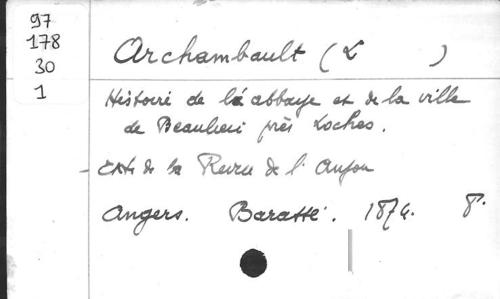 97
178
30
1
Archambault (L )
Histoire de l'abbaye et de la ville
de Beaulieu près Loches.
- Extr de la Revue de l'Anjou
Angers. Barassé. 1874. 8°.